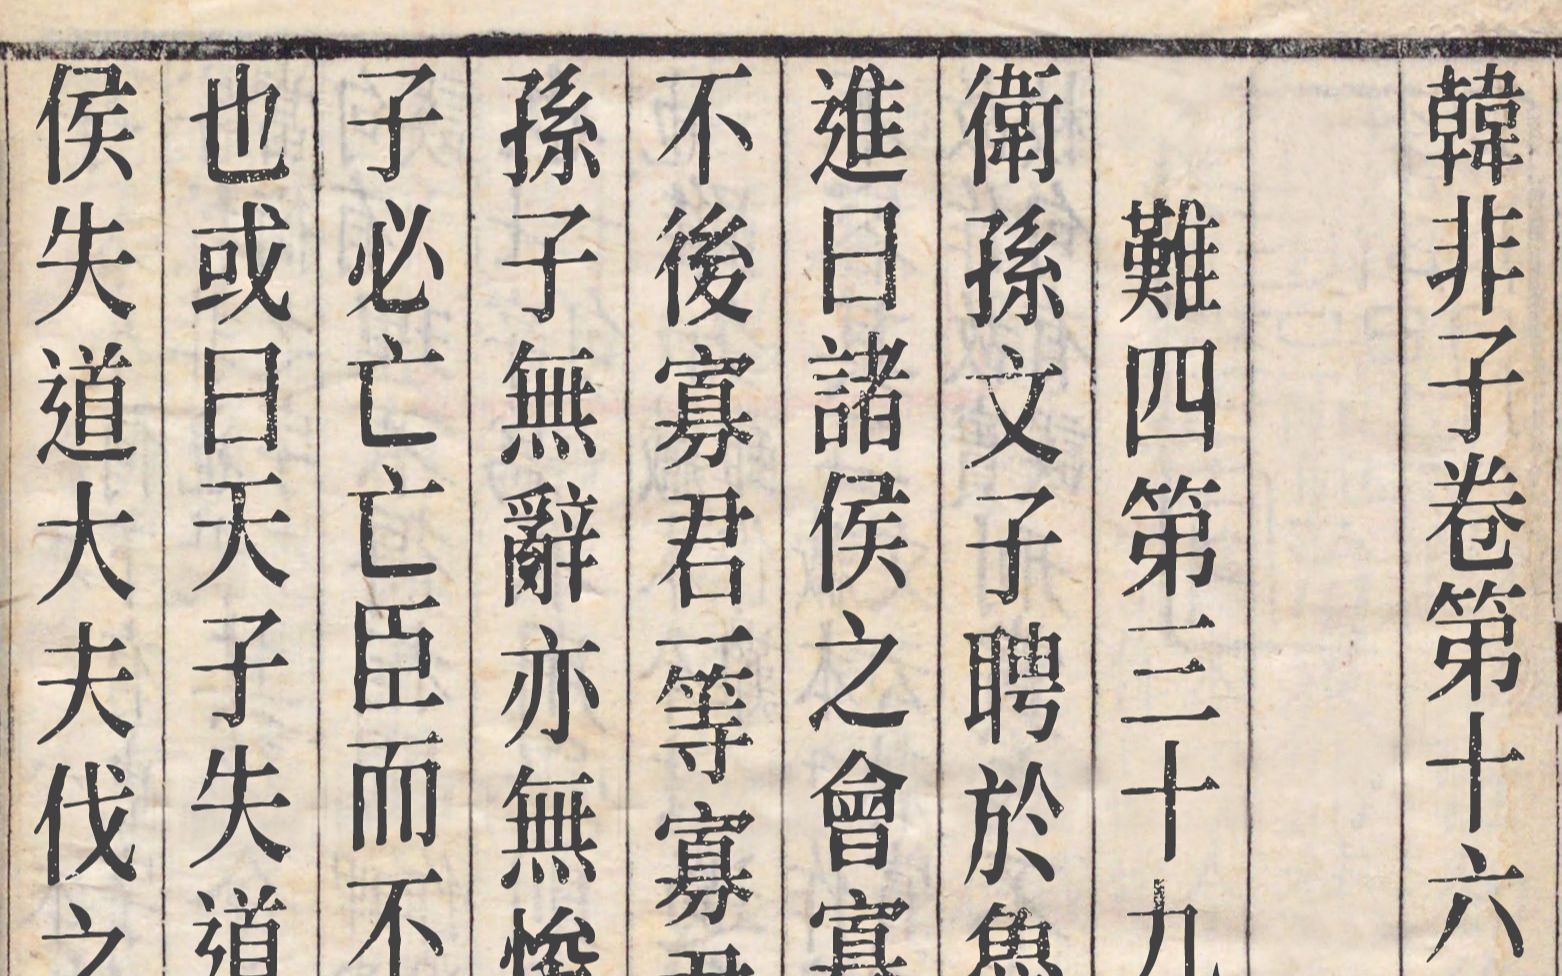 韓非子卷第十六
難四第三十九
衛孫文子聘於魯
進曰諸侯之會寡
不後寡君一等寡君
孫子無辭亦無悛
子必亡亡臣而不
也或曰天子失道
侯失道大夫伐之